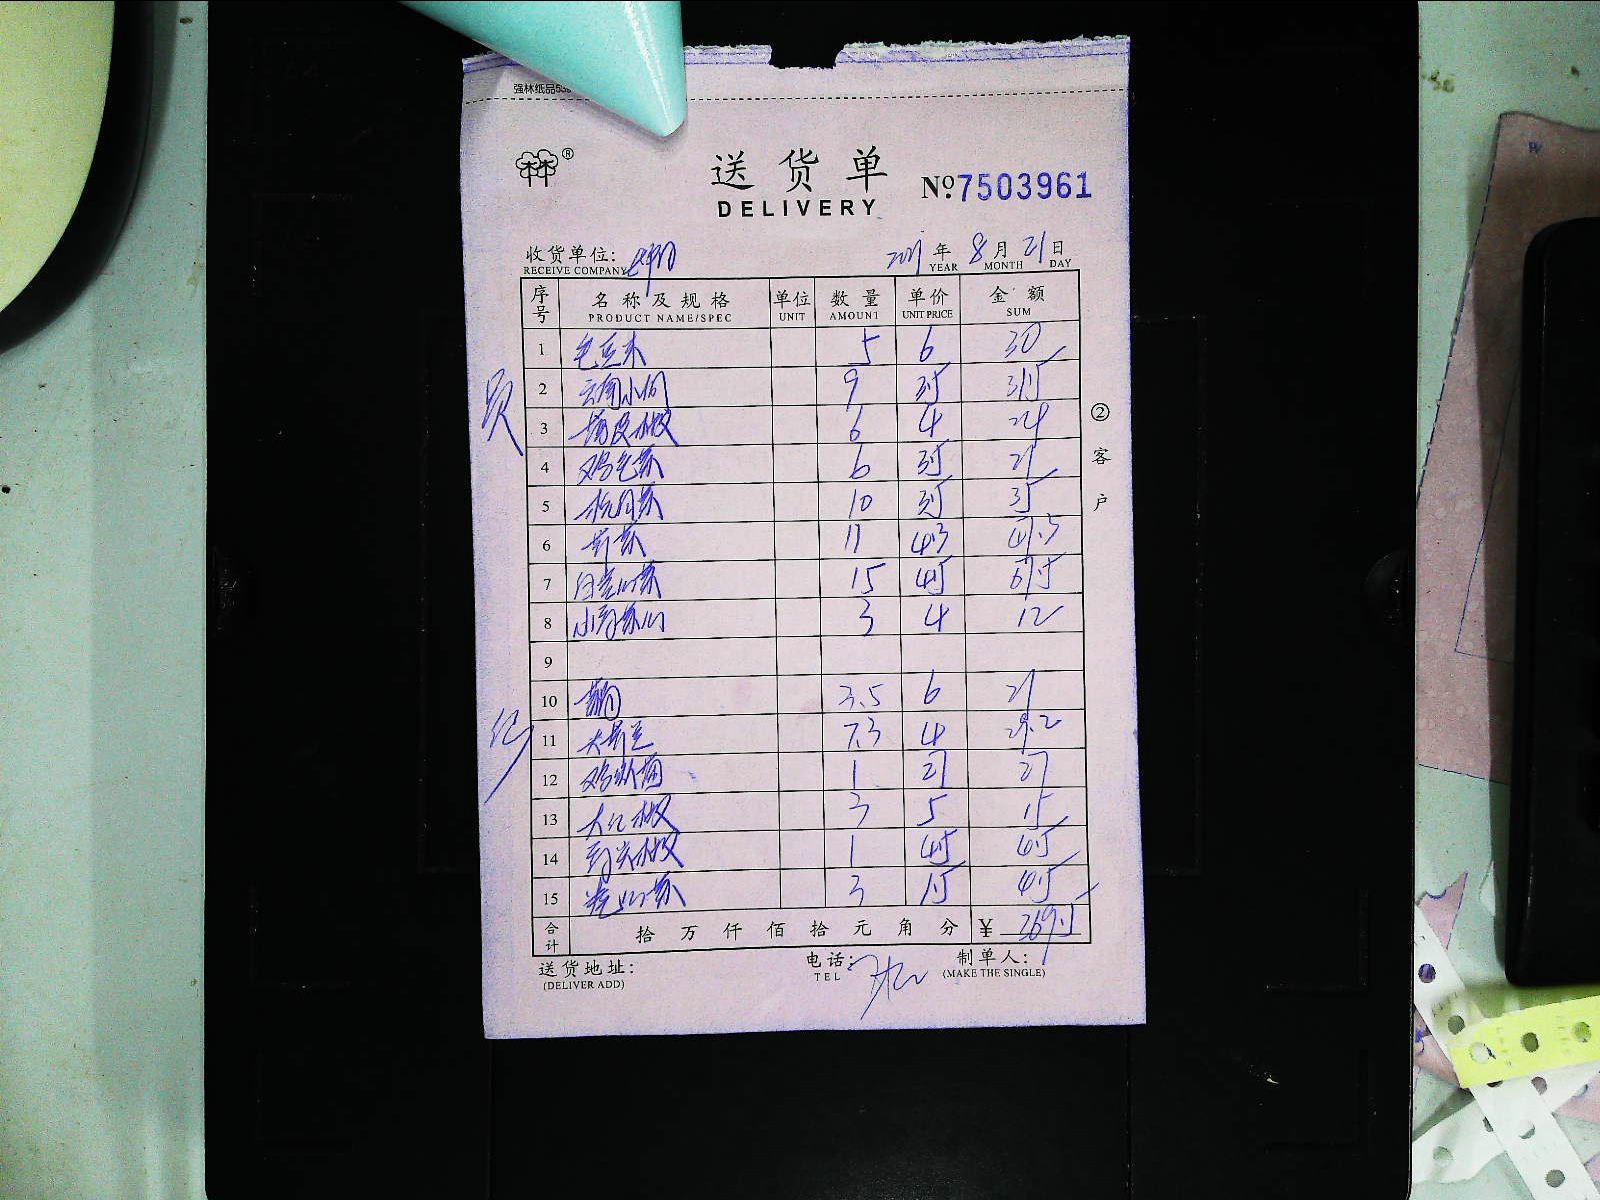 强林纸品
送货单 №7503961
DELIVERY
收货单位: 年 8 月 21 日
RECEIVE COMPANY YEAR MONTH DAY
序号 名称及规格 单位 数量 单价 金额
PRODUCT NAME/SPEC UNIT AMOUNT UNIT PRICE SUM
1 毛豆米 5 6 30
2 云南小瓜 9 3.5 31.5
3 薄皮椒 6 4 24
4 鸡毛菜 6 3.5 21
5 杭白菜 10 3.5 35
6 芹菜 11 4.3 47.3
7 15 4.5 67.5
8 小青菜心 3 4 12
9
10 3.5 6 21
11 7.3 4 29.2
12 1 27 27
13 大红椒 3 5 15
14 青尖椒 1 4.5 4.5
15 3 1.5 4.5
合计 拾 万 仟 佰 拾 元 角 分 ¥ 369.5
② 客户
送货地址: 电话: 制单人:
(DELIVER ADD) TEL (MAKE THE SINGLE)